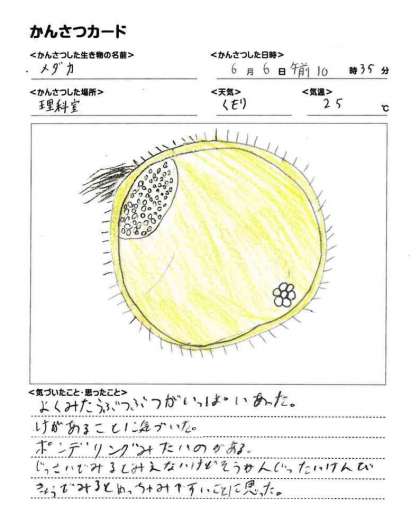 かんさつカード
<かんさつした生き物の名前>
メダカ
<かんさつした日時>
6月6日午前10時35分
<かんさつした場所>
理科室
<天気>
くもり
<気温>
25℃
<気づいたこと・思ったこと>
よくみたらぶつぶつがいっぱいあった。
けがあることに気づいた。
ポンデリングみたいのがある。
じっさいでみるとみえないけどそうがんじったいけんび
きょうでみるとめっちゃみやすいことに思った。